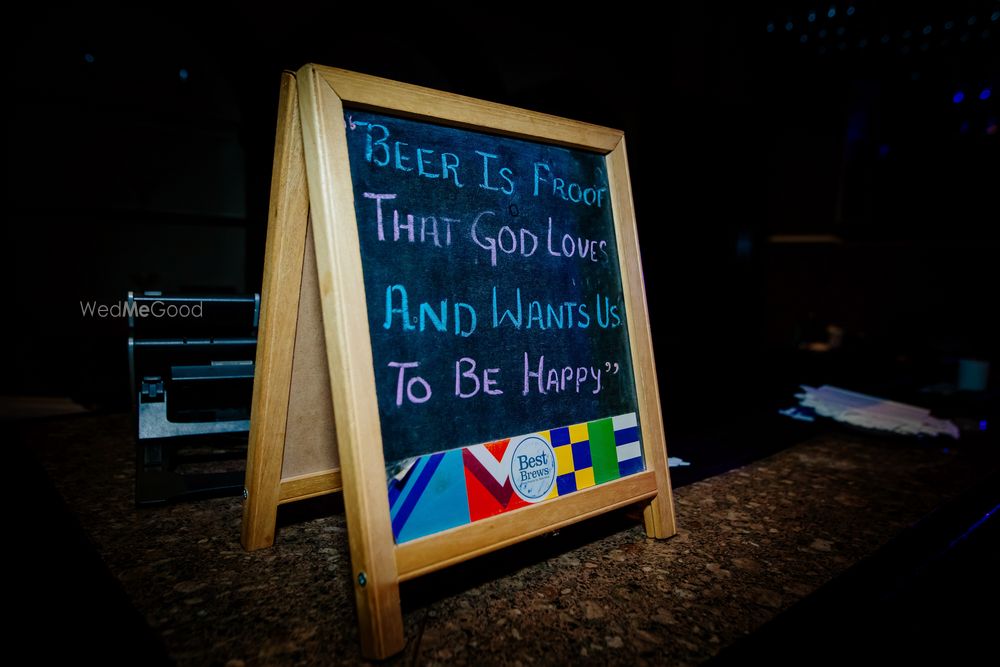 “Beer Is Proof
That God Loves
And Wants Us
To Be Happy.”
Best
Brews
WedMeGood